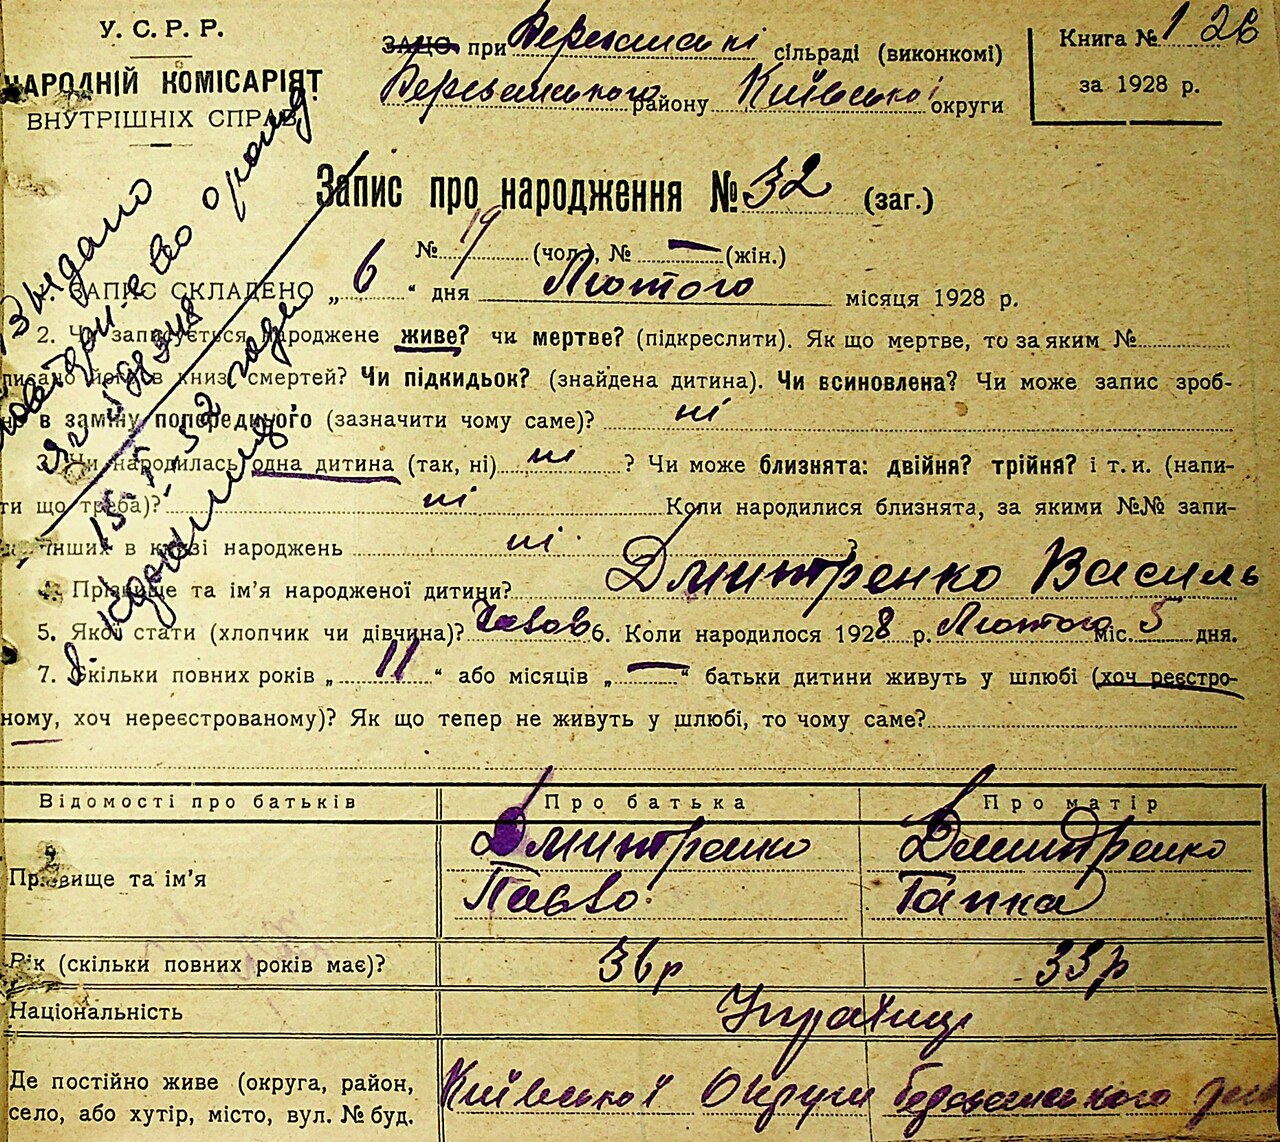 У. С. Р. Р.
НАРОДНІЙ КОМІСАРІЯТ
ВНУТРІШНІХ СПРАВ
ЗАЦС при Березанські сільраді (виконкомі)
Березанського району Київської округи
Книга № 1 26
за 1928 р.
Запис про народження № 32 (заг.)
№ 19 (чол.), № — (жін.)
ЗАПИС СКЛАДЕНО „ 6 “ дня Лютого місяця 1928 р.
2. Чи записується народжене живе? чи мертве? (підкреслити). Як що мертве, то за яким №
писано його в книзі смертей? Чи підкидьок? (знайдена дитина). Чи всиновлена? Чи може запис зроб-
но в заміну попереднього (зазначити чому саме)? ні
3. Чи народилась одна дитина (так, ні) ні ? Чи може близнята: двійня? трійня? і т. и. (напи-
ти що треба)? ні Коли народилися близнята, за якими №№ запи-
інших в книзі народжень ні
4. Прізвище та ім'я народженої дитини? Дмитренко Василь
5. Якої стати (хлопчик чи дівчина)? 6. Коли народилося 1928 р. Лютого міс. 5 дня.
7. Скільки повних років „ 11 “ або місяців „ — “ батьки дитини живуть у шлюбі (хоч реєстро-
ному, хоч нереєстрованому)? Як що тепер не живуть у шлюбі, то чому саме?
Видано
свідоцтво
15-I-52 года
Відомості про батьків Про батька Про матір
Прізвище та ім'я Дмитренко Павло Дмитренко Гапка
Рік (скільки повних років має)? 36 р 33 р
Національність Українці
Де постійно живе (округа, район, Київської Округи Березанського
село, або хутір, місто, вул. № буд.